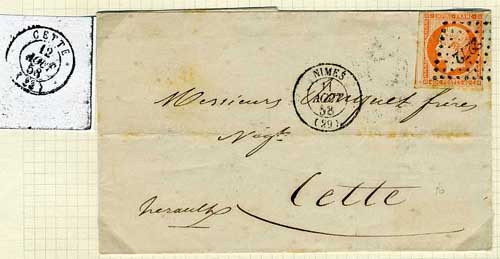 CETTE
12
AOUT
58
(33)
EMPIRE FRANC
NIMES
11
AOUT
58
(29)
Messieurs frères
Négts
Cette
herault